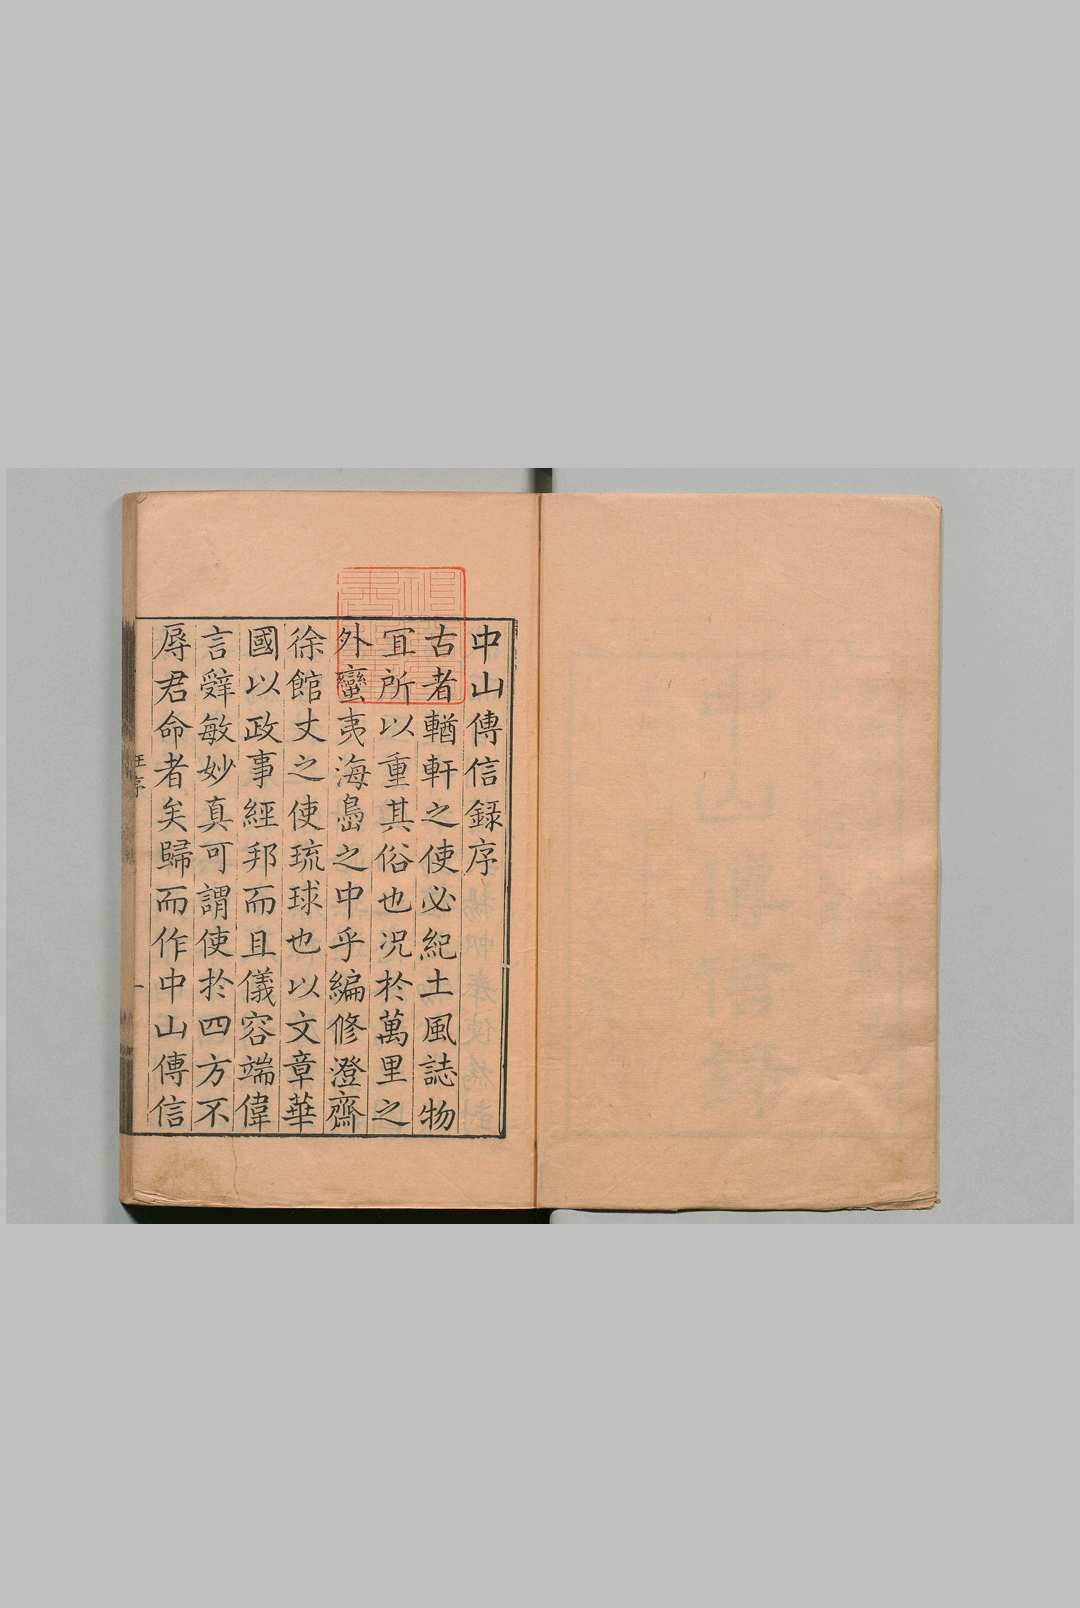 中山傳信錄序
古者輶軒之使必紀土風誌物
冝所以重其俗也况於萬里之
外蠻夷海㠀之中乎編修澄齋
徐館丈之使琉球也以文章華
國以政事經邦而且儀容端偉
言辭敏妙真可謂使於四方不
辱君命者矣歸而作中山傳信
汪序
一